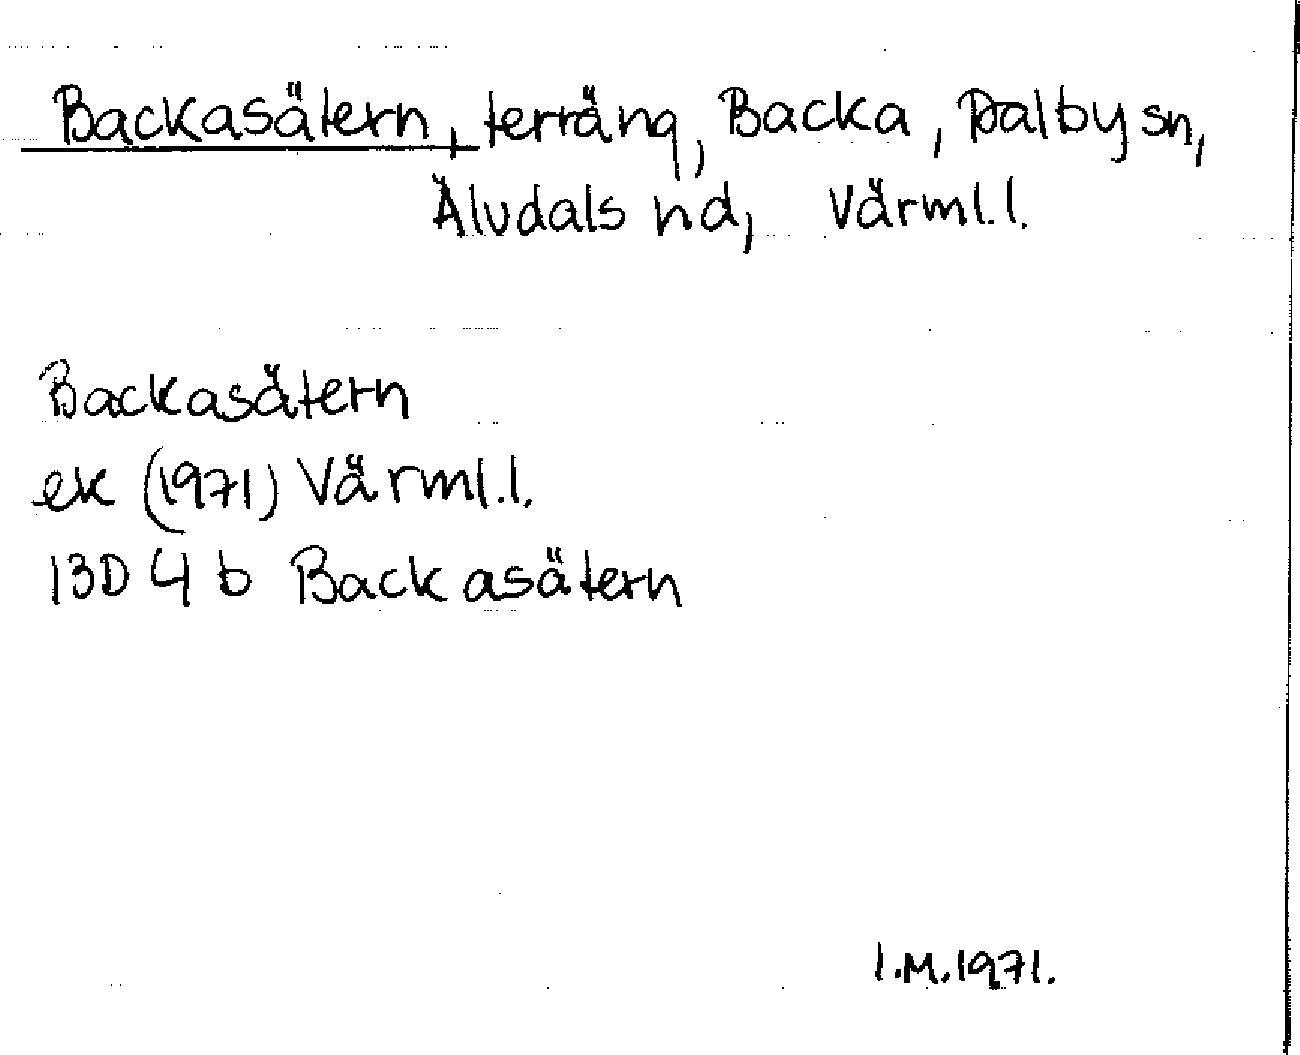 Backasätern, terräng, Backa, Dalby sn,
Älvdals hd, Värml.l.
Backasätern
ek (1971) Värml.l.
13D 4 b Backasätern
I.M.1971.